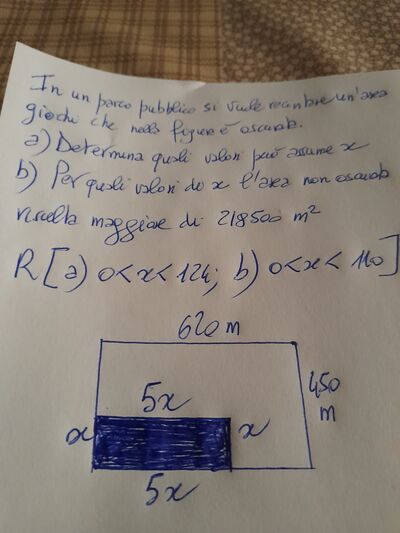 In un parco pubblico si vuole recintare un'area
giochi che nella figura è oscurata.
a) Determina quali valori può assume x
b) Per quali valori di x l'area non oscurata
risulta maggiore di 218500 m²
R [a) 0<x<124; b) 0<x<110]
620 m
5x
450
m
x
x
5x